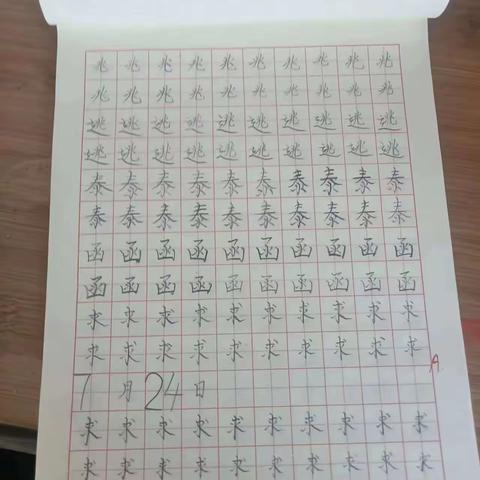 兆兆兆兆兆兆兆兆兆兆
兆兆兆兆兆兆兆兆兆兆
逃逃逃逃逃逃逃逃逃逃
逃逃逃逃逃逃逃逃逃逃
泰泰泰泰泰泰泰泰泰泰
泰泰泰泰泰泰泰泰泰泰
函函函函函函函函函函
函函函函函函函函函函
求求求求求求求求求求
求求求求求求求求求求
A
7月24日
求求求求求求求求求求
求求求求求求求求求求